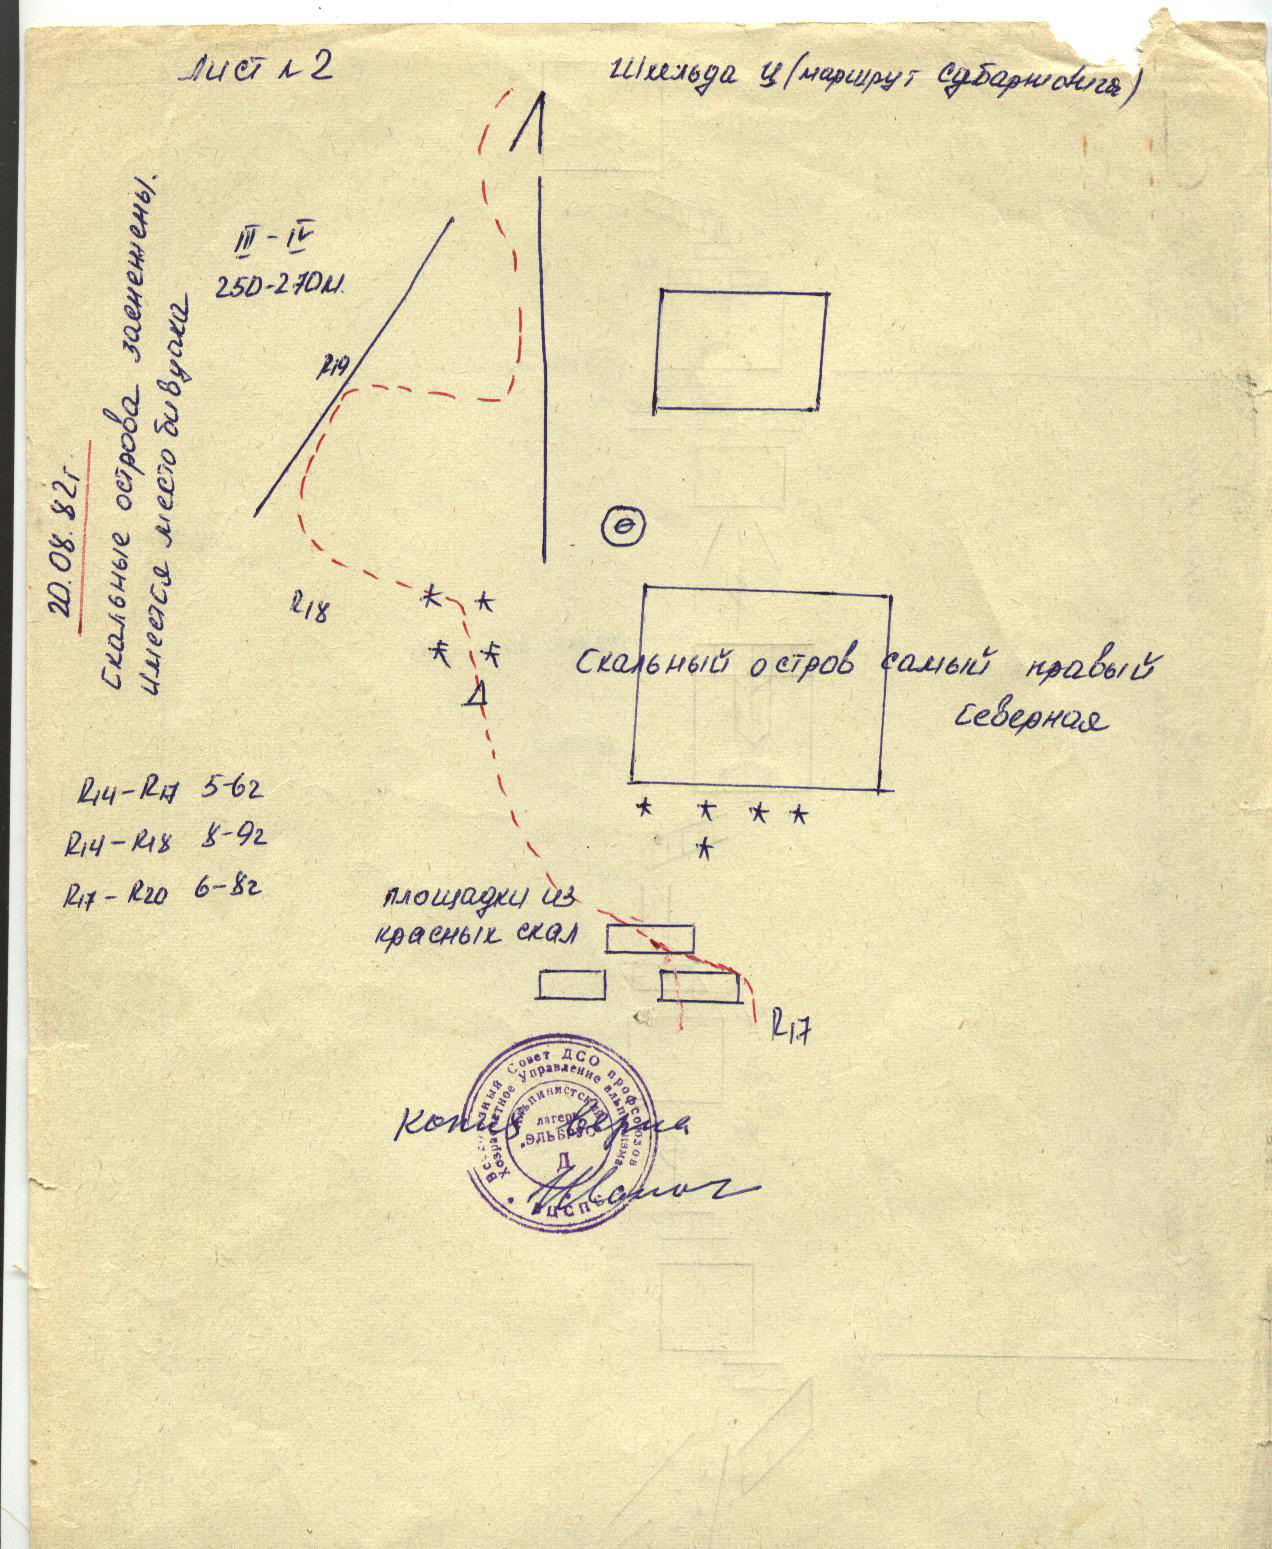 Лист №2
Шхельда Ц (маршрут Субартовича)
III - IV
250-270м.
R19
20.08.82г.
Скальные острова заснежены.
Имеется место бивуака
R18
Скальный остров самый правый
Северная
R14-R17 5-6г
R14-R18 8-9г
R17-R20 6-8г
площадки из
красных скал
R17
Всесоюзный Совет ДСО профсоюзов
Хозрасчетное Управление альпинизма
Альпинистский
лагерь
"ЭЛЬБРУС"
Д
ВЦСПС
Копия верна